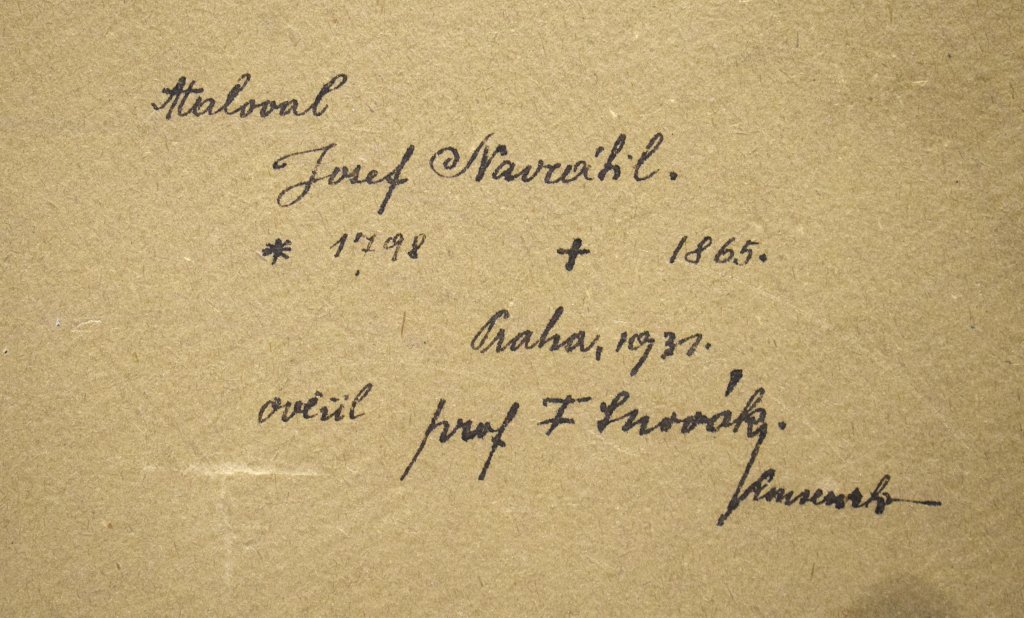 Maloval
Josef Navrátil.
* 1798 + 1865.
Praha, 1931.
ověřil prof F